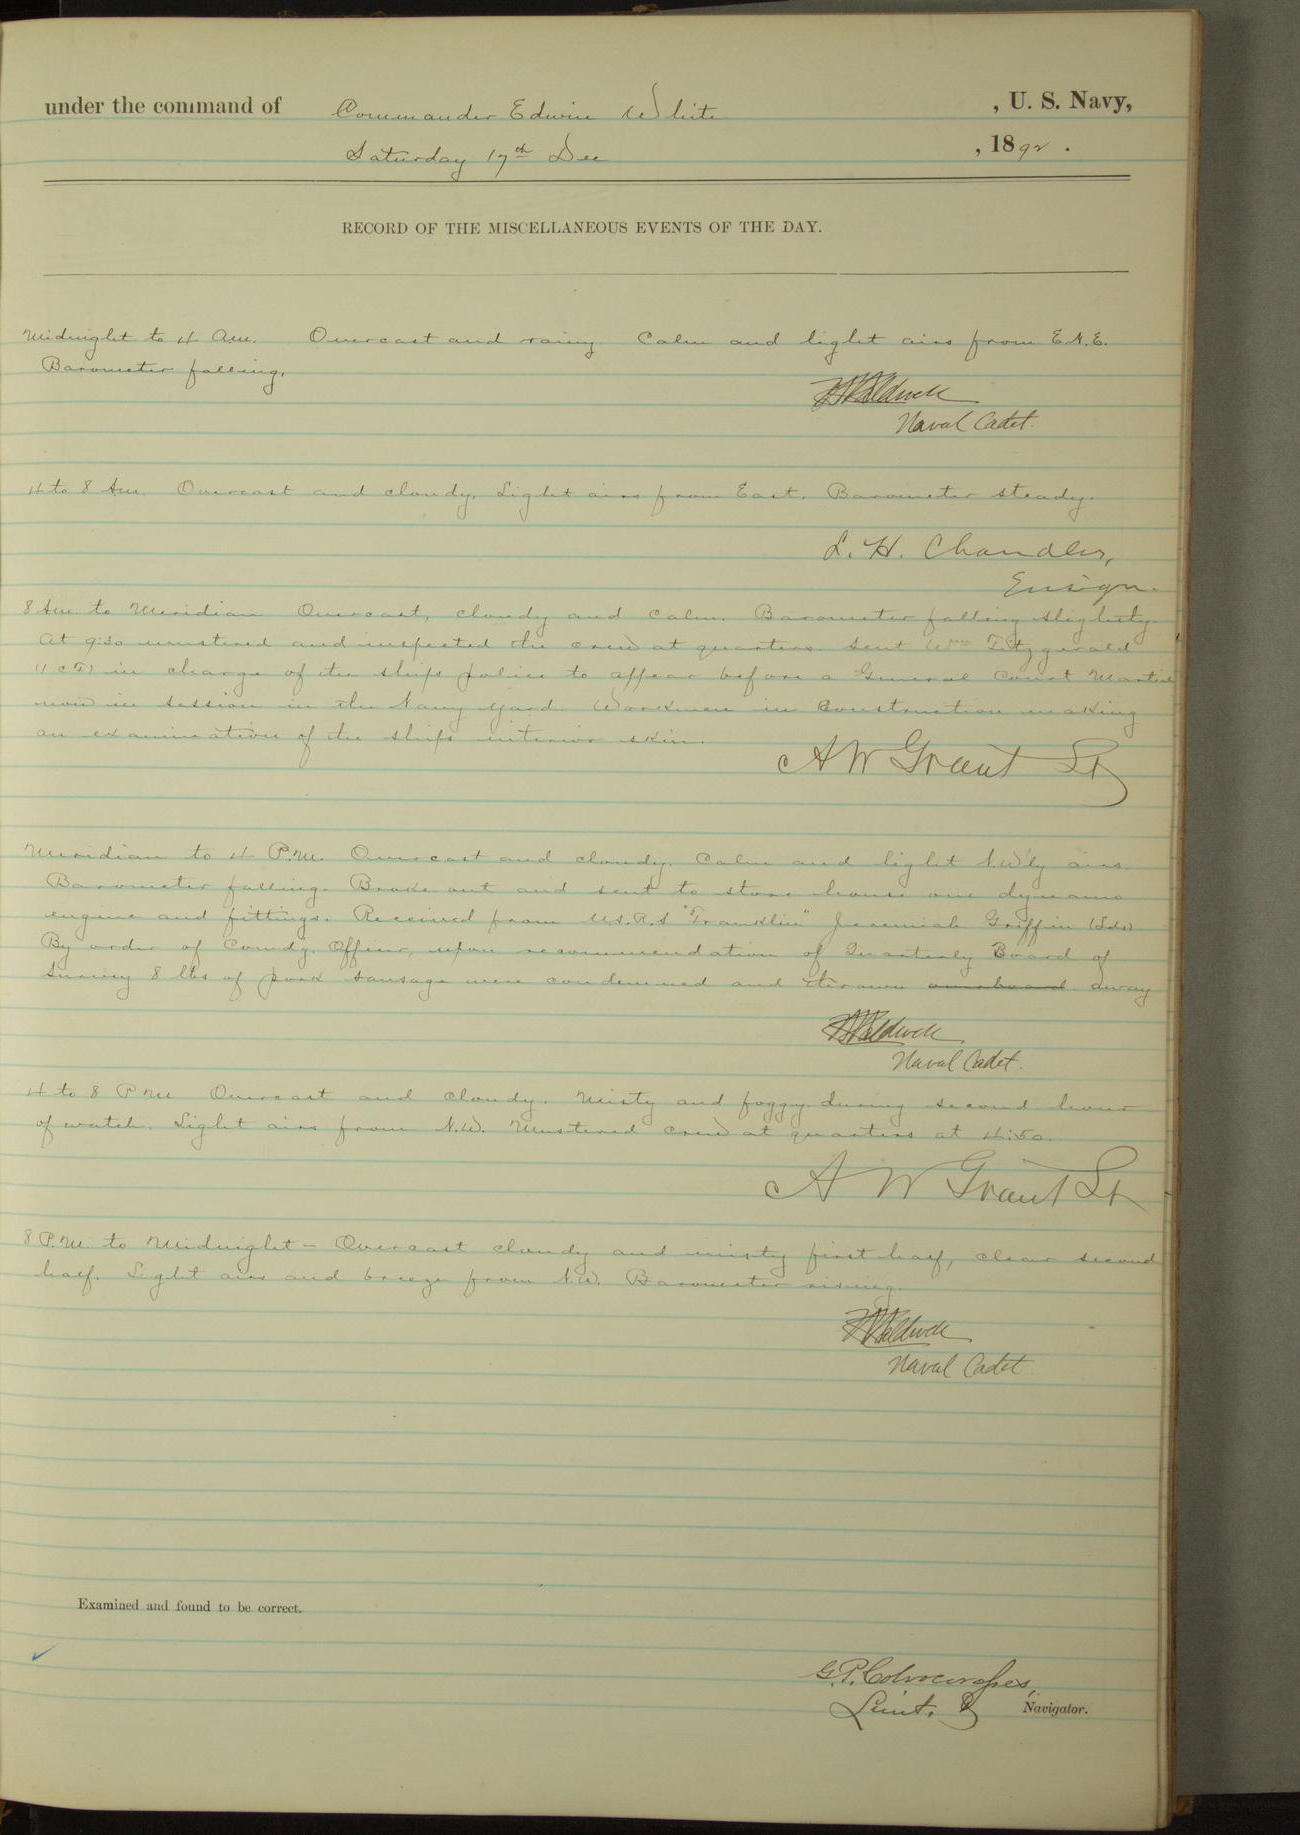 under the command of Commander Edwin White , U. S. Navy,
Saturday 17th Dec , 1892.
RECORD OF THE MISCELLANEOUS EVENTS OF THE DAY.
Midnight to 4 Am. Overcast and rainy. Calm and light airs from E.N.E.
Barometer falling.
Baldwin
Naval Cadet.
4 to 8 Am. Overcast and cloudy. Light airs from East. Barometer steady.
L. H. Chandler,
Ensign.
8 Am. to Meridian Overcast, cloudy and calm. Barometer falling slightly.
At 9:30 mustered and inspected the crew at quarters. Sent Wm Fitzgerald
in charge of the ships police to appear before a General Court Martial
now in session in the Navy Yard. Workmen in Construction making
an examination of the ships interior skin.
A W Grant Lt
Meridian to 4 P.M. Overcast and cloudy. Calm and light N.W'ly airs
Barometer falling. Broke out and sent to store house one dynamo
engine and fittings. Received from U.S.R.S "Franklin" Jeremiah Griffin (Lds)
By order of Comdg. Officer, upon recommendation of Quarterly Board of
Survey 8 lbs of pork sausage were condemned and thrown overboard away
Baldwin
Naval Cadet.
4 to 8 P.M. Overcast and cloudy. Misty and foggy during second hour
of watch. Light airs from N.W. Mustered crew at quarters at 4:50.
A W Grant Lt
8 P.M. to Midnight – Overcast cloudy and misty first half, clear second
half. Light airs and breeze from N.W. Barometer rising.
Baldwin
Naval Cadet
Examined and found to be correct.
G.P. Colvocoresses,
Lieut. & Navigator.